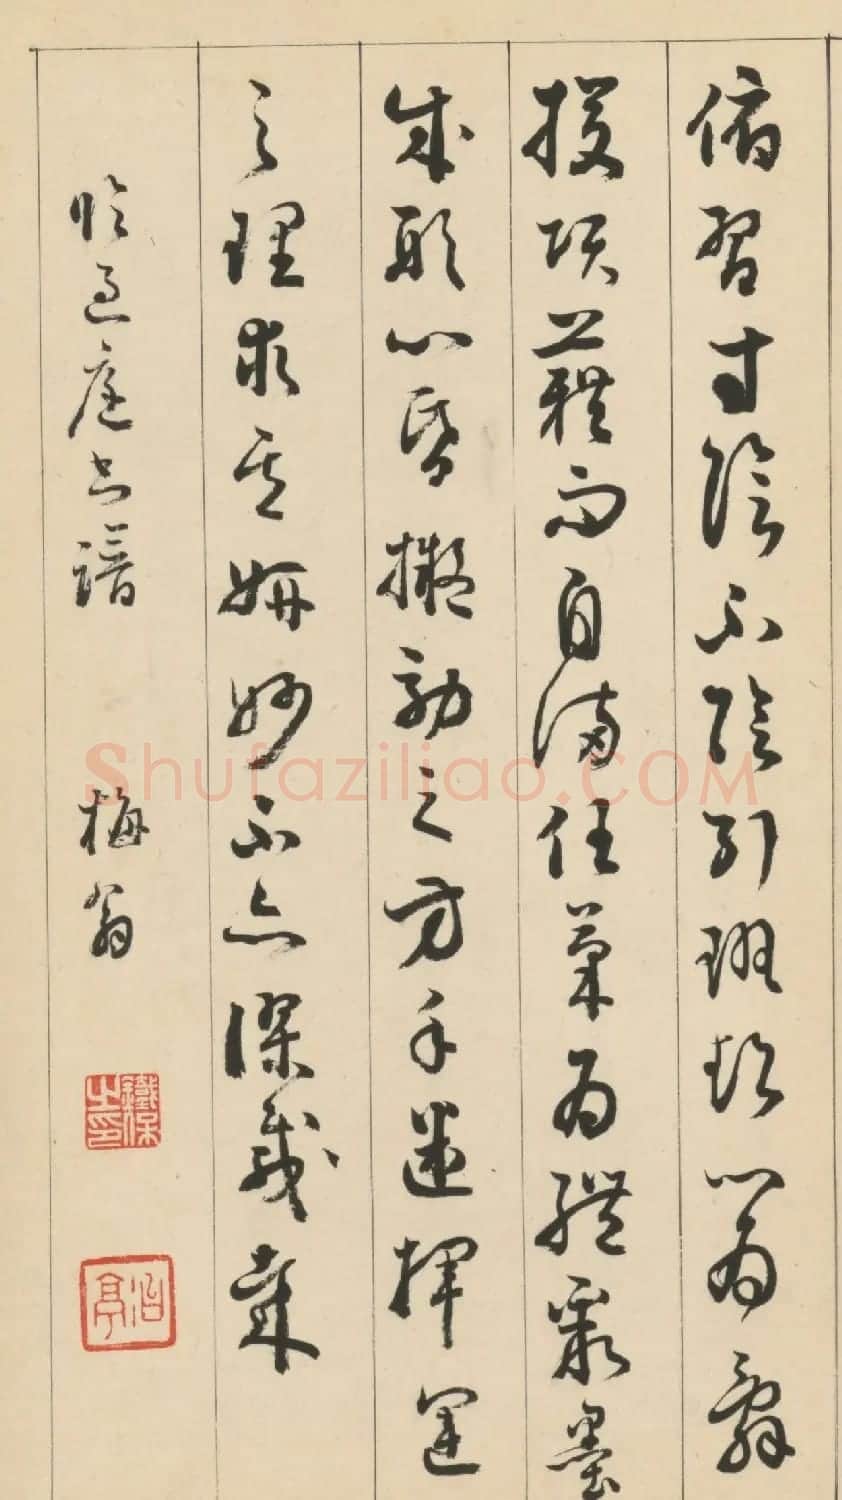 脩習寸陰不陰引班超以為辭
援項籍而自滿任筆為體聚墨
成形心昏擬効之方手迷揮運
之理求其妍妙不亦謬哉然
臨過庭書譜
梅翁
鐵保之印
冶亭
Shufaziliao.COM